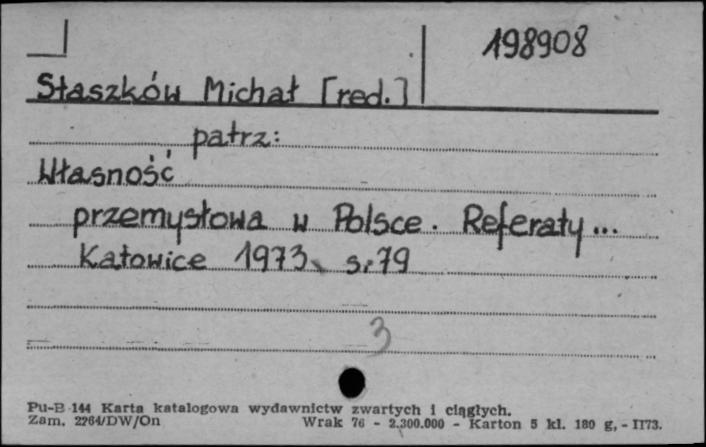 198908
Staszków Michał [red.]
patrz:
Własność
przemysłowa w Polsce. Referaty...
Katowice 1973, s. 79
3
Pu-B 144 Karta katalogowa wydawnictw zwartych i ciągłych.
Zam. 2264/DW/On Wrak 76 - 2.300.000 - Karton 5 kl. 180 g, - II73.